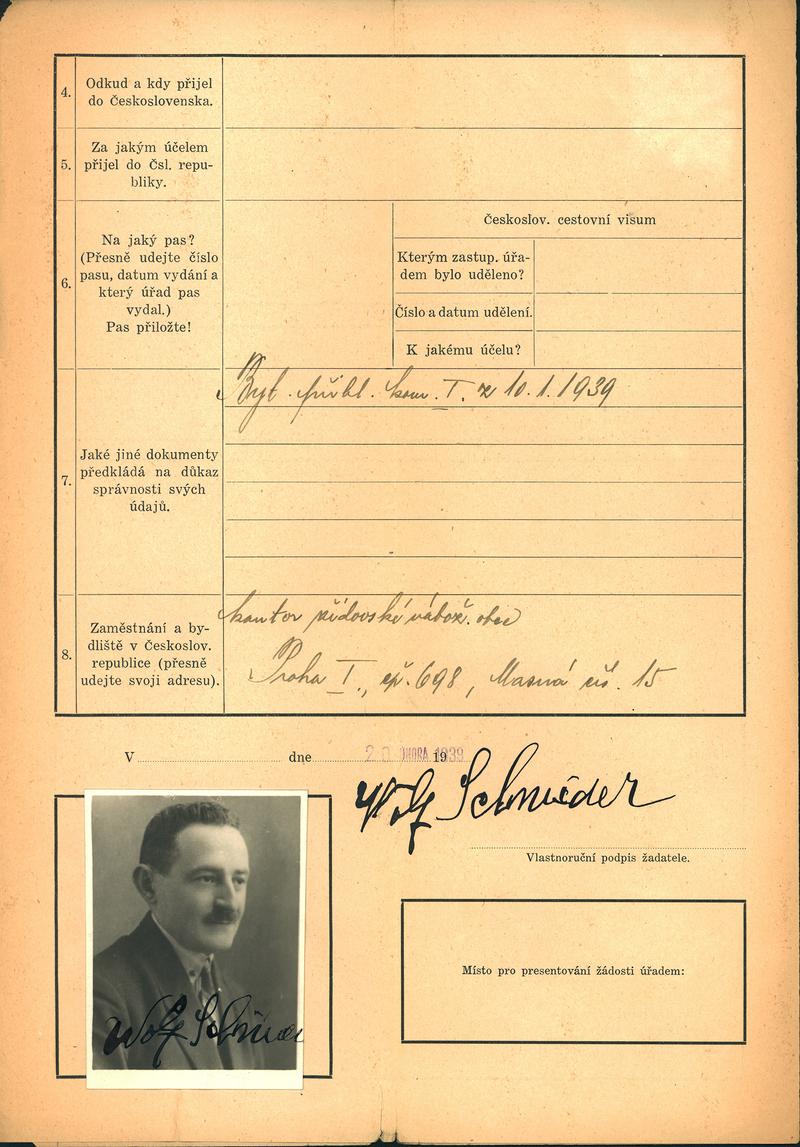 4.
Odkud a kdy přijel
do Československa.
5.
Za jakým účelem
přijel do Čsl. repu-
bliky.
6.
Na jaký pas?
(Přesně udejte číslo
pasu, datum vydání a
který úřad pas
vydal.)
Pas přiložte!
Českoslov. cestovní visum
Kterým zastup. úřa-
dem bylo uděleno?
Číslo a datum udělení.
K jakému účelu?
7.
Jaké jiné dokumenty
předkládá na důkaz
správnosti svých
údajů.
Byt. přihl. kom. I. z 10.1.1939
8.
Zaměstnání a by-
dliště v Českoslov.
republice (přesně
udejte svoji adresu).
kantor židovské nábož. obce
Praha I., čp. 698, Masná čís. 15
V dne 20 ÚNORA 1939 19
Wolf Schnieder
Vlastnoruční podpis žadatele.
Místo pro presentování žádosti úřadem:
Wolf